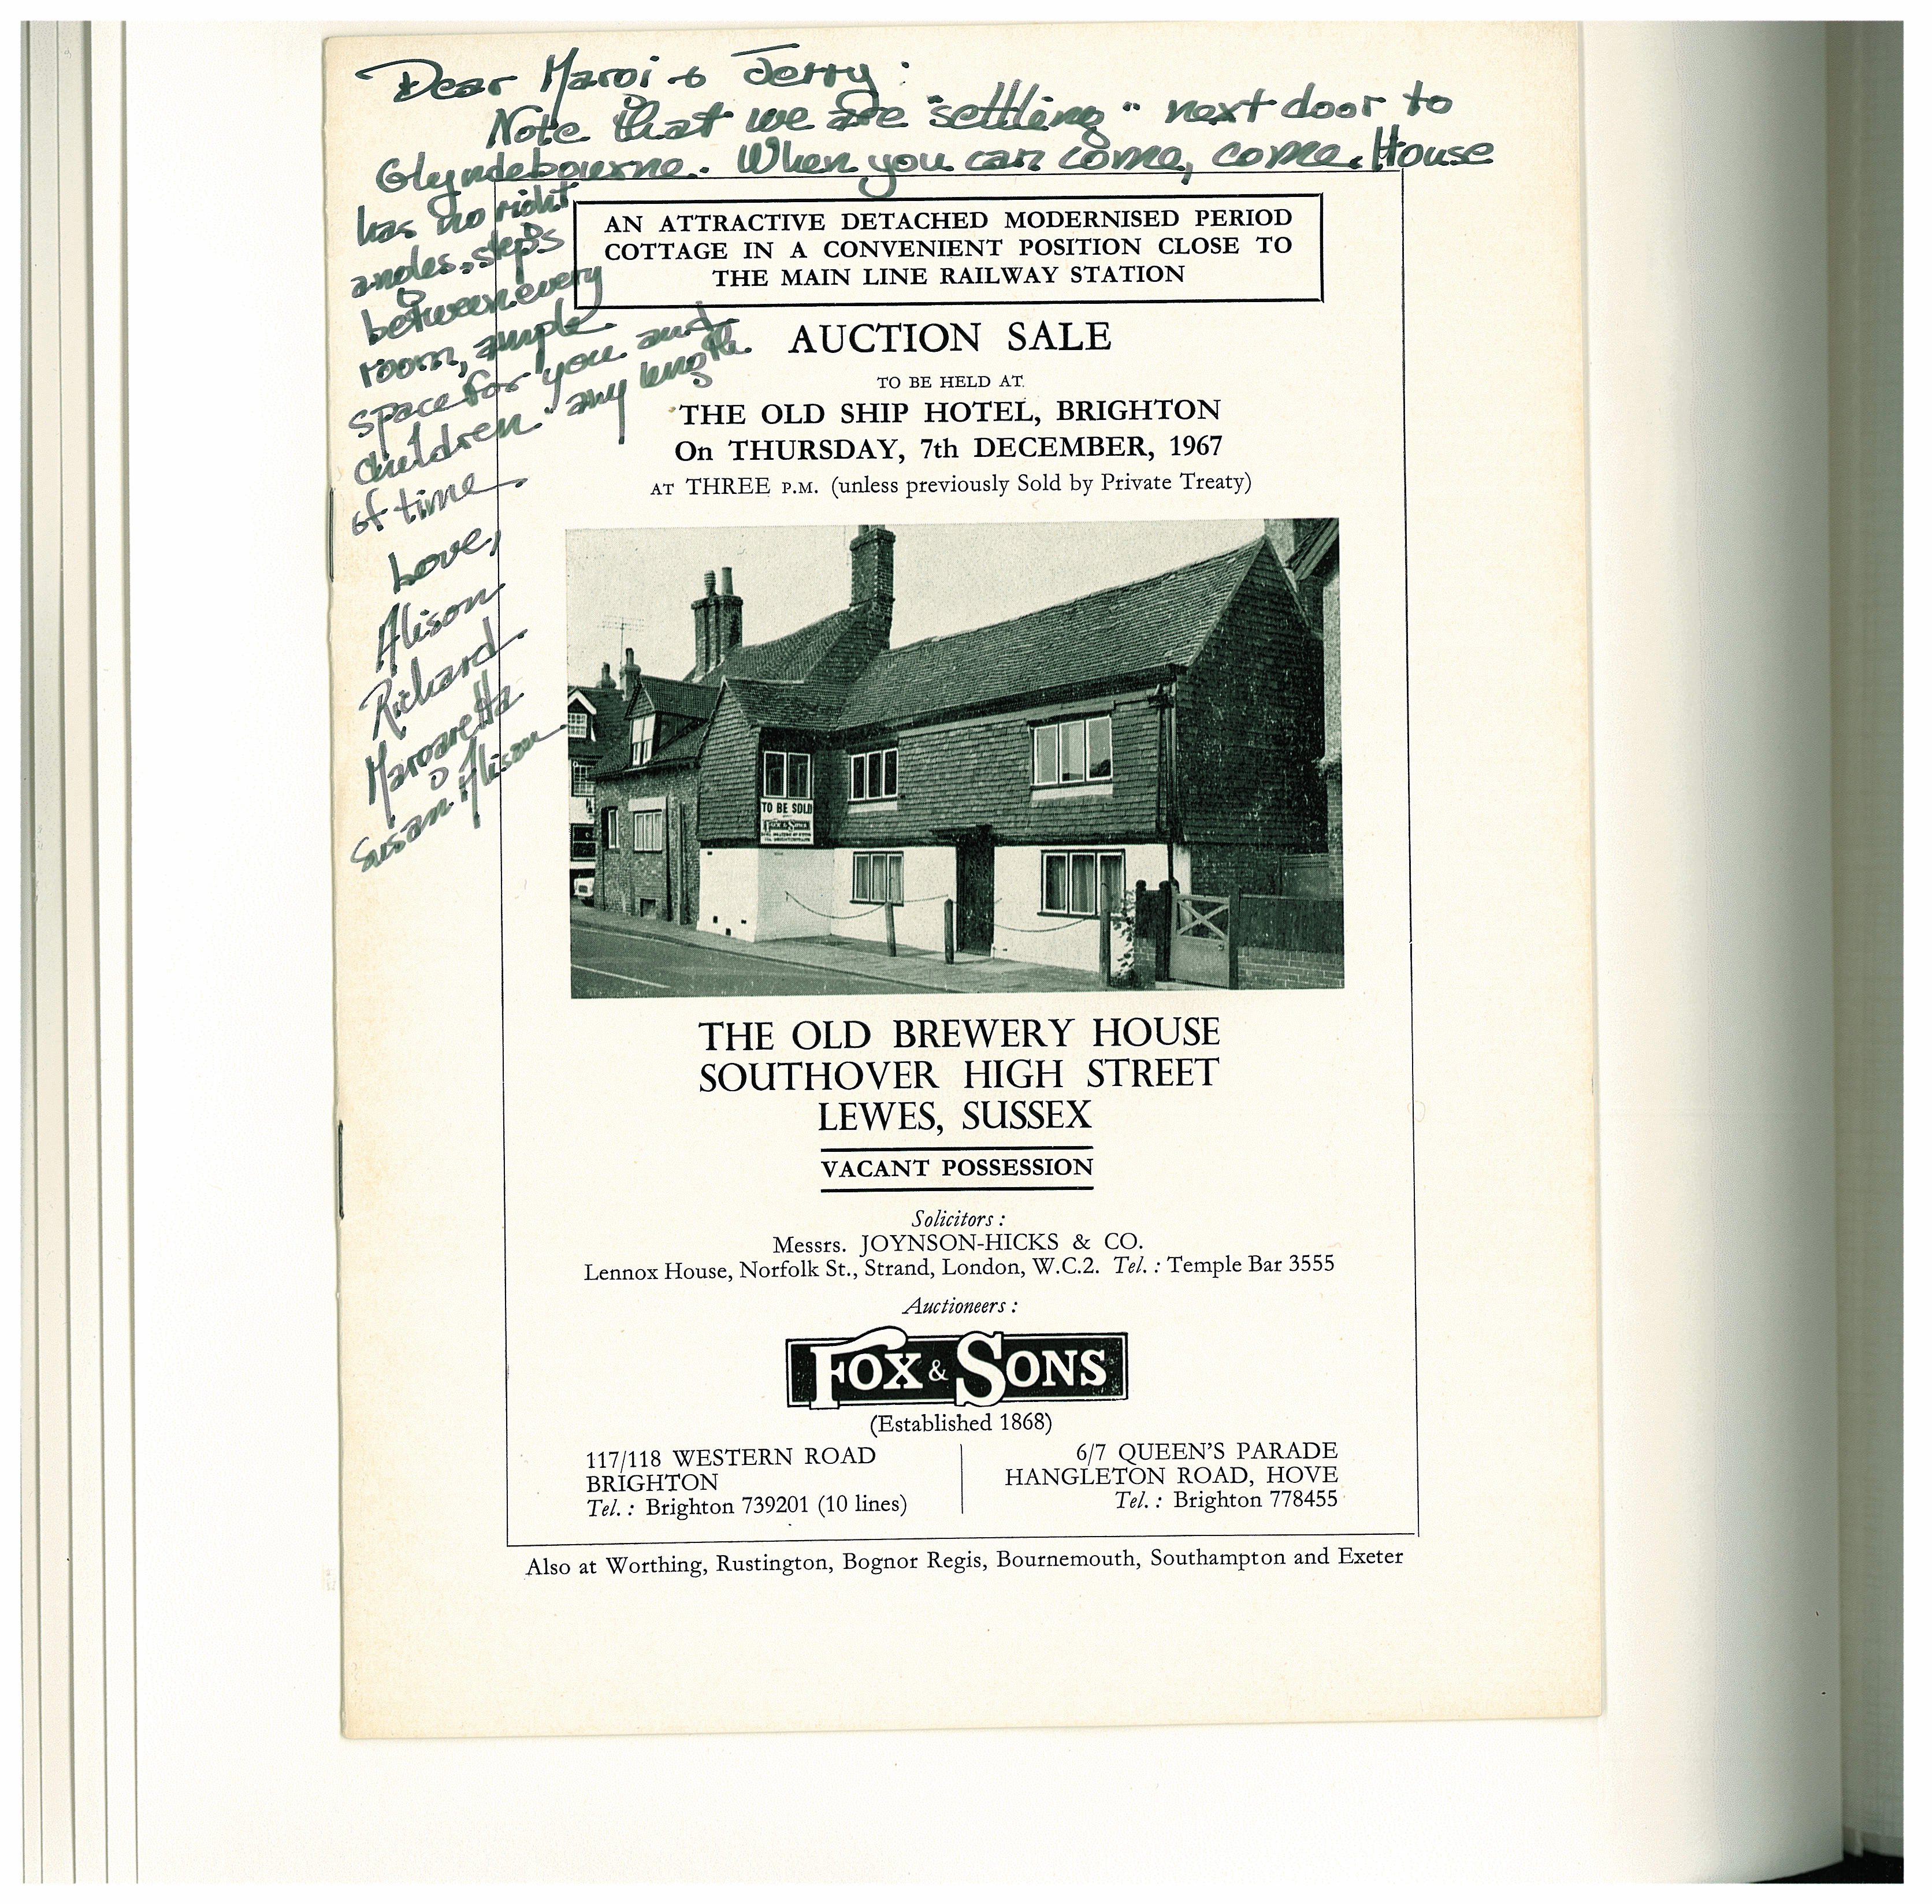 Dear Margi & Jerry:
Note that we are "settling" next door to
Glyndebourne. When you can come, come. House
has no right
angles, steps
between every
room, ample
space for you and
children any length
of time.
Love,
Alison
Richard
Margaretta
Susan Alison
AN ATTRACTIVE DETACHED MODERNISED PERIOD
COTTAGE IN A CONVENIENT POSITION CLOSE TO
THE MAIN LINE RAILWAY STATION
AUCTION SALE
TO BE HELD AT
THE OLD SHIP HOTEL, BRIGHTON
On THURSDAY, 7th DECEMBER, 1967
AT THREE P.M. (unless previously Sold by Private Treaty)
TO BE SOLD
FOX & SONS
THE OLD BREWERY HOUSE
SOUTHOVER HIGH STREET
LEWES, SUSSEX
VACANT POSSESSION
Solicitors :
Messrs. JOYNSON-HICKS & CO.
Lennox House, Norfolk St., Strand, London, W.C.2. Tel. : Temple Bar 3555
Auctioneers :
FOX & SONS
(Established 1868)
117/118 WESTERN ROAD
BRIGHTON
Tel. : Brighton 739201 (10 lines)
6/7 QUEEN'S PARADE
HANGLETON ROAD, HOVE
Tel. : Brighton 778455
Also at Worthing, Rustington, Bognor Regis, Bournemouth, Southampton and Exeter